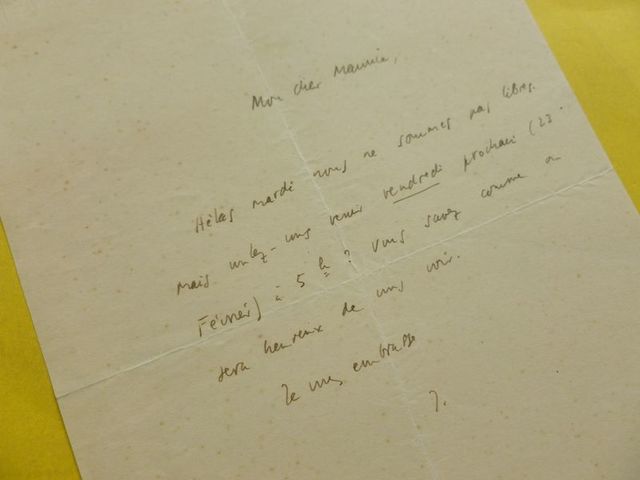 Mon cher Maurice,
Hélas mardi nous ne sommes pas libres.
Mais voulez-vous venir vendredi prochain (23
Février) à 5 h ? Vous savez comme on
sera heureux de vous voir.
Je vous embrasse
J.